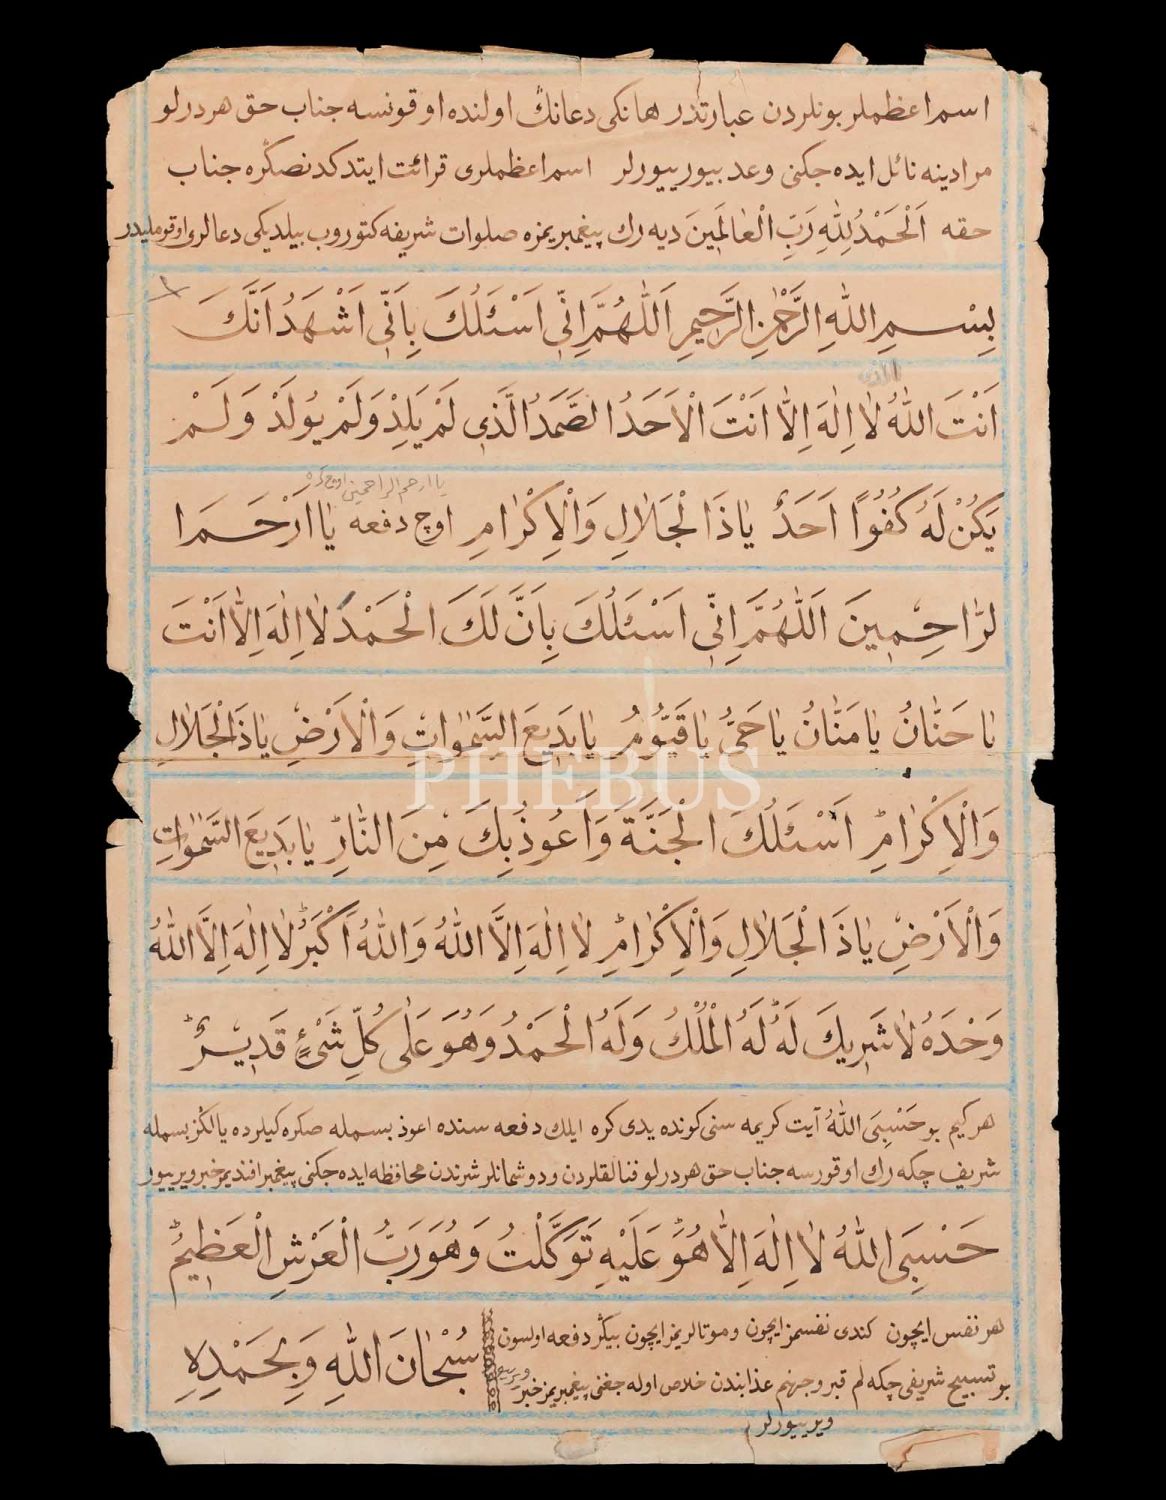 اسم اعظملر بونلردن عبارتدر هانكی دعانڭ اولنده اوقونسه جناب حق هر درلو
مرادینه نائل ایده جكنی وعد بیوریيورلر اسم اعظملری قرائت ایتدكدنصڭره جناب
حقه اَلْحَمْدُ لِلّٰهِ رَبِّ الْعَالَمِينَ دیه رك پیغمبریمزه صلوات شریفه كتوروب بیلدیكی دعالری اوقوملیدر
بِسْمِ اللّٰهِ الرَّحْمٰنِ الرَّحِيمِ اَللّٰهُمَّ اِنّٖي اَسْئَلُكَ بِاَنّٖي اَشْهَدُ اَنَّكَ
الذی
اَنْتَ اللّٰهُ لَا اِلٰهَ اِلَّا اَنْتَ الْاَحَدُ الصَّمَدُ الَّذٖي لَمْ يَلِدْ وَلَمْ يُولَدْ وَلَمْ
یا ارحم الراحمین اوچ كره
يَكُنْ لَهُ كُفُوًا اَحَدٌ يَا ذَا الْجَلَالِ وَالْاِكْرَامِ اوچ دفعه يَا اَرْحَمَ ا
لرَّاحِمٖينَ اَللّٰهُمَّ اِنّٖي اَسْئَلُكَ بِاَنَّ لَكَ الْحَمْدَ لَا اِلٰهَ اِلَّا اَنْتَ
يَا حَنَّانُ يَا مَنَّانُ يَا حَيُّ يَا قَيُّومُ يَا بَدٖيعَ السَّمٰوَاتِ وَالْاَرْضِ يَا ذَا الْجَلَالِ
PHEBUS
وَالْاِكْرَامِ اَسْئَلُكَ الْجَنَّةَ وَاَعُوذُ بِكَ مِنَ النَّارِ يَا بَدٖيعَ السَّمٰوَاتِ
وَالْاَرْضِ يَا ذَا الْجَلَالِ وَالْاِكْرَامِ لَا اِلٰهَ اِلَّا اللّٰهُ وَاللّٰهُ اَكْبَرُ لَا اِلٰهَ اِلَّا اللّٰهُ
وَحْدَهُ لَا شَرٖيكَ لَهُ لَهُ الْمُلْكُ وَلَهُ الْحَمْدُ وَهُوَ عَلٰى كُلِّ شَيْءٍ قَدٖيرٌ
هر كیم بو حَسْبِيَ اللّٰهُ آیت كریمه سنی كونده یدی كره ایلك دفعه سنده اعوذ بسمله صكره كیلرده یالڭز بسمله
شریف چكه رك اوقورسه جناب حق هر درلو فنالقلردن ودوشمانلر شرندن محافظه ایده جكنی پیغمبر افندیمز خبر ویرییور
حَسْبِيَ اللّٰهُ لَا اِلٰهَ اِلَّا هُوَ عَلَيْهِ تَوَكَّلْتُ وَهُوَ رَبُّ الْعَرْشِ الْعَظٖيمِ
هر نفس ایچون كندی نفسمز ایچون وموتالریمز ایچون بیڭر دفعه اولسون
بو تسبیح شریفی چكه لم قبر وجهنم عذابندن خلاص اوله جغنی پیغمبریمز خبر
ویرییورلر
سُبْحَانَ اللّٰهِ وَبِحَمْدِهٖ